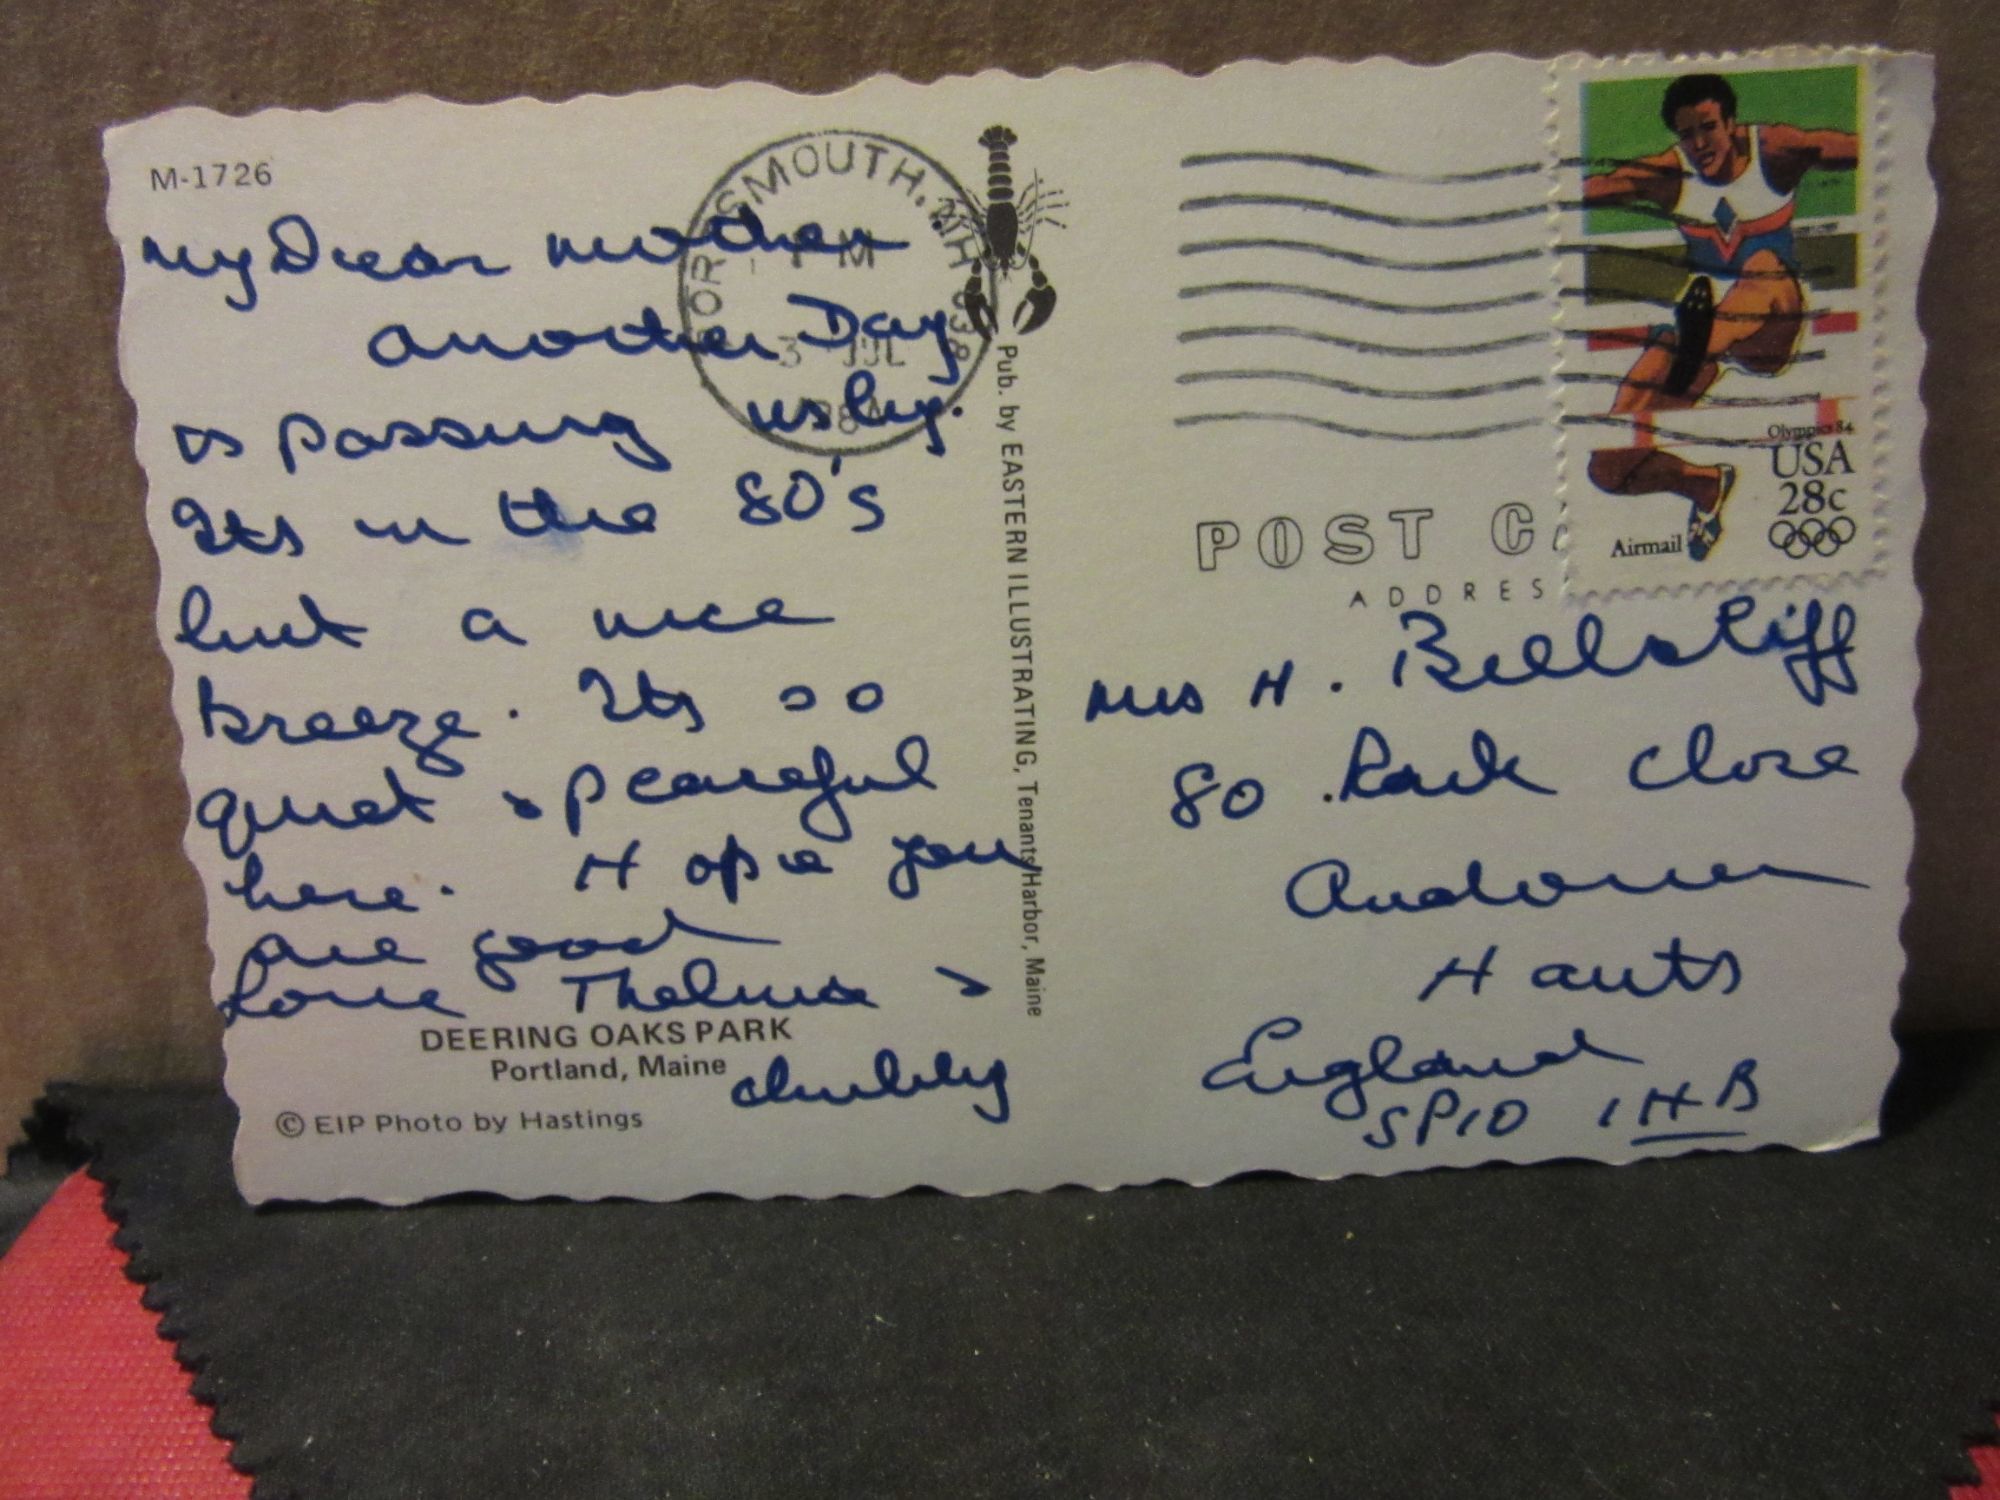 M-1726
My Dear Mother
another Day
is passing us by.
Its in the 80's
but a nice
breeze. Its so
quiet & peaceful
here. Hope you
are good
Love Thelma &
chubby
DEERING OAKS PARK
Portland, Maine
© EIP Photo by Hastings
PORTSMOUTH, NH 038
PM
3 JUL
Pub. by EASTERN ILLUSTRATING, Tenants Harbor, Maine
Olympics 84
USA
28c
Airmail
POST C
ADDRES
Mrs H.
80 Close
Andover
Hants
England
SP10 1HB